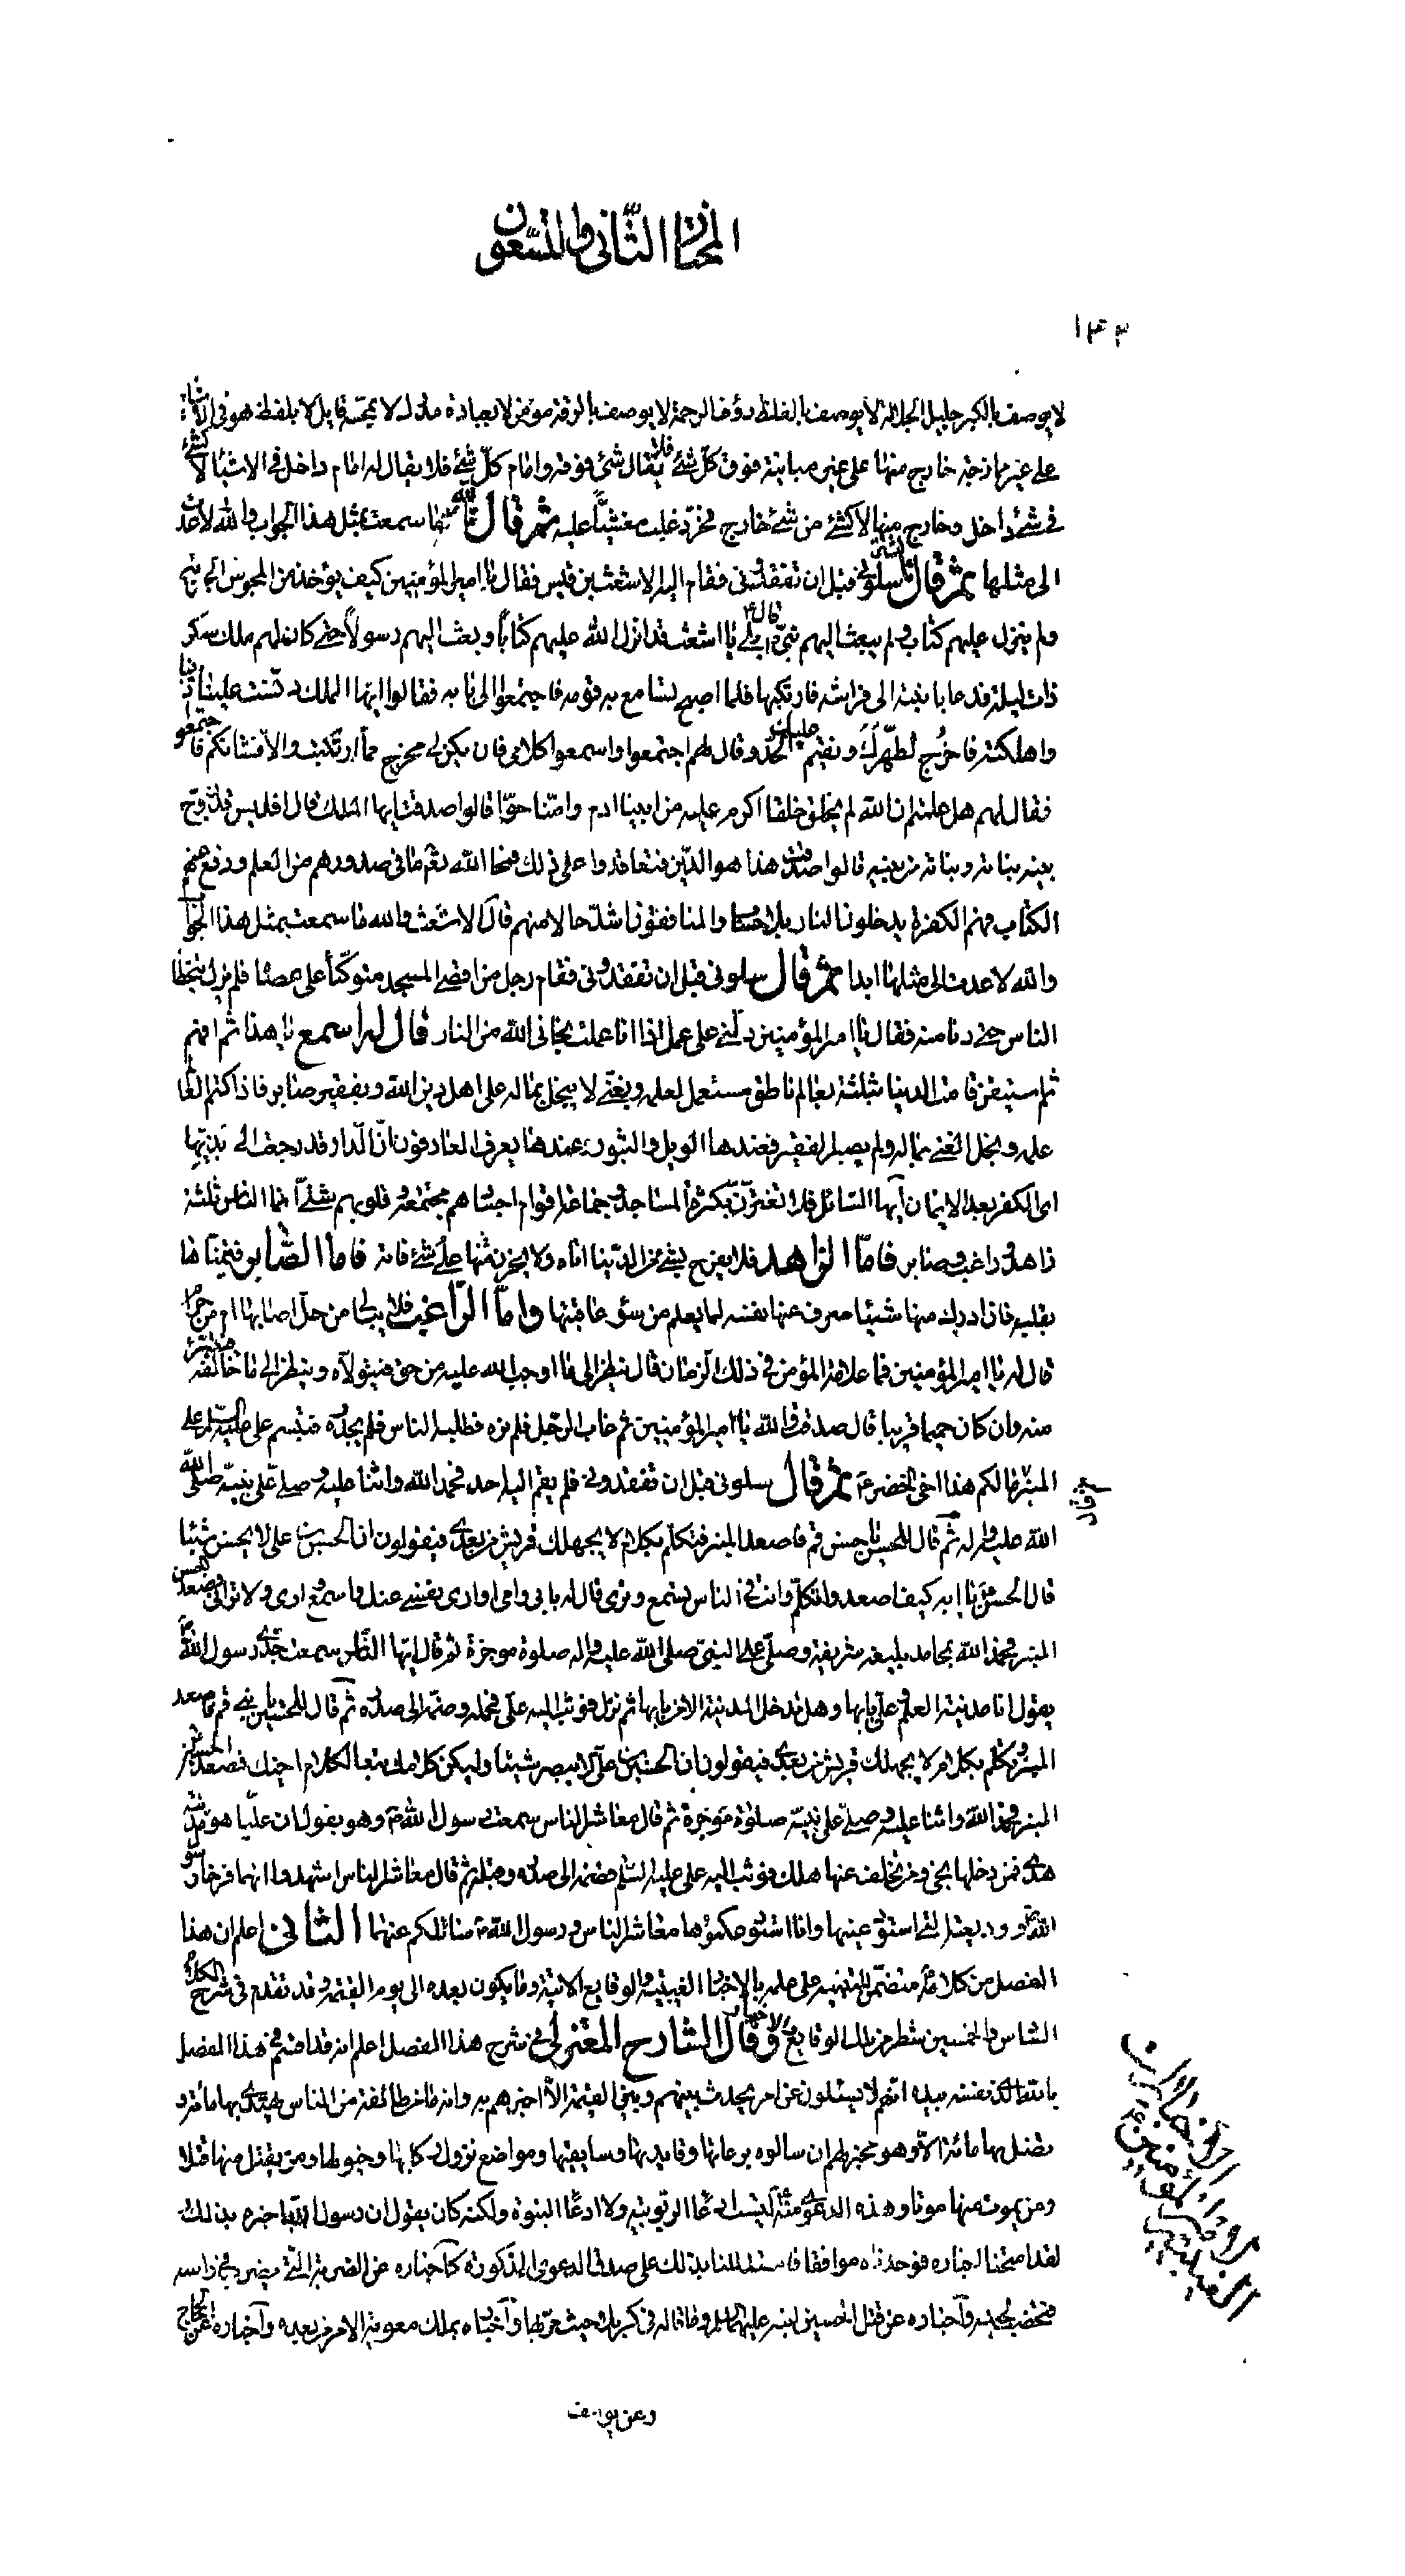 المختار الثاني والتسعون
١٤٣
لا يوصف بالكبر جليل الجلالة لا يوصف بالغلظ رؤف الرحمة لا يوصف بالرقة مؤمن لا بعبادة مدرك لا بمحسة قايل لا بلفظ هو في الاشياء
على غير ممازجة خارج منها على غير مباينة فوق كل شئ فلا يقال شئ فوقه وامام كل شئ فلا يقال له امام داخل في الاشياء لا كشئ
في شئ داخل وخارج منها لا كشئ من شئ خارج فخر ذعلب مغشيا عليه ثم قال تالله ما سمعت بمثل هذا الجواب والله لا عدت
الى مثلها ثم قال سلوني قبل ان تفقدوني فقام اليه الاشعث بن قيس فقال يا امير المؤمنين كيف يؤخذ من المجوس الجزية
ولم ينزل عليهم كتاب ولم يبعث اليهم نبي قال بلى يا اشعث قد انزل الله عليهم كتابا وبعث اليهم رسولا حتى كان لهم ملك سكر
ذات ليلة فدعا بابنته الى فراشه فارتكبها فلما اصبح تسامع به قومه فاجتمعوا الى بابه فقالوا ايها الملك دنست علينا ديننا
واهلكته فاخرج نطهرك ونقيم عليك الحد فقال لهم اجتمعوا واسمعوا كلامي فان يكن لي مخرج مما ارتكبت والا فشانكم فاجتمعوا
فقال لهم هل علمتم ان الله لم يخلق خلقا اكرم عليه من ابينا ادم وامنا حوا قالوا صدقت ايها الملك قال افليس قد زوج
بنيه بناته وبناته من بنيه قالوا صدقت هذا هو الدين فتعاقدوا على ذلك فمحا الله ما في صدورهم من العلم ورفع عنهم
الكتاب فهم الكفرة يدخلون النار بلا حساب والمنافقون اشد حالا منهم قال الاشعث والله ما سمعت بمثل هذا الجواب
والله لا عدت الى مثلها ابدا ثم قال سلوني قبل ان تفقدوني فقام رجل من اقصى المسجد متوكئا على عصا فلم يزل يتخطا
الناس حتى دنا منه فقال يا امير المؤمنين دلني على عمل اذا انا عملته نجاني الله من النار قال له اسمع يا هذا ثم افهم
ثم استيقن قامت الدنيا بثلثة بعالم ناطق مستعمل لعلمه وبغني لا يبخل بماله على اهل دين الله وبفقير صابر فاذا كتم العالم
علمه وبخل الغني بماله ولم يصبر الفقير فعندها الويل والثبور وعندها يعرف العارفون ان الدار قد رجعت الى بديها
اى الكفر بعد الايمان ايها السائل فلا تغترن بكثرة المساجد وجماعة اقوام اجسادهم مجتمعة وقلوبهم شتى انما الناس ثلثة
زاهد وراغب وصابر فاما الزاهد فلا يفرح بشئ من الدنيا اتاه ولا يحزن منها على شئ فاته فاما الصابر فيتمناها
بقلبه فان ادرك منها شيئا صرف عنها نفسه لما يعلم من سوء عاقبتها واما الراغب فلا يبالي من حل اصابها ام من حرام
قال له يا امير المؤمنين فما علامة المؤمن في ذلك الزمان قال ينظر الى ما اوجب الله عليه من حق فيتولاه وينظر الى ما خالفه فيتبرء
منه وان كان حميما قريبا قال صدقت والله يا امير المؤمنين ثم غاب الرجل فلم نره فطلبه الناس فلم يجدوه فتبسم على عليه السلام على
المنبر ثم قال ما لكم هذا اخي الخضر ثم قال سلوني قبل ان تفقدوني فلم يقم اليه احد فحمد الله واثنا عليه وصلى على نبيه صلى
الله عليه واله ثم قال للحسن يا حسن قم فاصعد المنبر فتكلم بكلام لا يجهلك قريش من بعدي فيقولون ان الحسن بن علي لا يحسن شيئا
قال الحسن يا ابه كيف اصعد واتكلم وانت في الناس تسمع وترى قال له بابي وامي اواري نفسي عنك واسمع وارى ولا تراني فصعد الحسن
المنبر فحمد الله بمحامد بليغة شريفة وصلى على النبي صلى الله عليه واله صلوة موجزة ثم قال ايها الناس سمعت جدي رسول الله
يقول انا مدينة العلم وعلي بابها وهل تدخل المدينة الا من بابها ثم نزل فوثب اليه علي فحمله وضمه الى صدره ثم قال للحسين يا بني قم فاصعد
المنبر وتكلم بكلام لا يجهلك قريش من بعدي فيقولون ان الحسين بن علي لا يبصر شيئا وليكن كلامك تبعا لكلام اخيك فصعد الحسين
المنبر فحمد الله واثنا عليه وصلى على نبيه صلوة موجزة ثم قال معاشر الناس سمعت رسول الله وهو يقول ان عليا هو مدينة
هدى فمن دخلها نجى ومن تخلف عنها هلك فوثب اليه علي عليه السلم فضمه الى صدره وقبله ثم قال معاشر الناس اشهدوا انهما فرخا رسول
الله ووديعته التي استودعنيها وانا استودعكموها معاشر الناس ورسول الله سائلكم عنهما الثاني اعلم ان هذا
الفصل من كلامه متضمن للتنبيه على علمه بالاخبار الغيبية والوقايع الاتية وما يكون بعده الى يوم القيمة وقد تقدم في شرح الكلام
السادس والخمسين شطر من تلك الوقايع والاخبار وقال الشارح المعتزلي في شرح هذا الفصل اعلم انه قد اقسم في هذا الفصل
بالله الذي نفسه بيده انهم لا يسئلون عن امر يحدث بينهم وبين القيمة الا اخبرهم به وانه ما من طائفة من الناس يهتدى بها مائة و
تضل بها مائة الا وهو مخبر لهم ان سالوه برعاتها وقايدها وسايقها ومواضع نزول ركابها وخيولها ومن يقتل منها قتلا
ومن يموت منها موتا وهذه الدعوى منه ليست ادعا الربوبية ولا ادعا النبوة ولكنه كان يقول ان رسول الله اخبره بذلك
لقد امتحنا اخباره فوجدناه موافقا فاستدللنا بذلك على صدق الدعوى المذكورة كاخباره عن الضربة التي يضرب في راسه
فتخضب لحيته واخباره عن قتل الحسين ابنه عليهما السلم وما قاله في كربلا حيث مر بها واخباره بملك معوية الامر من بعده واخباره عن الحجاج
وعن يوسف
امير المؤمنين
الغيبية